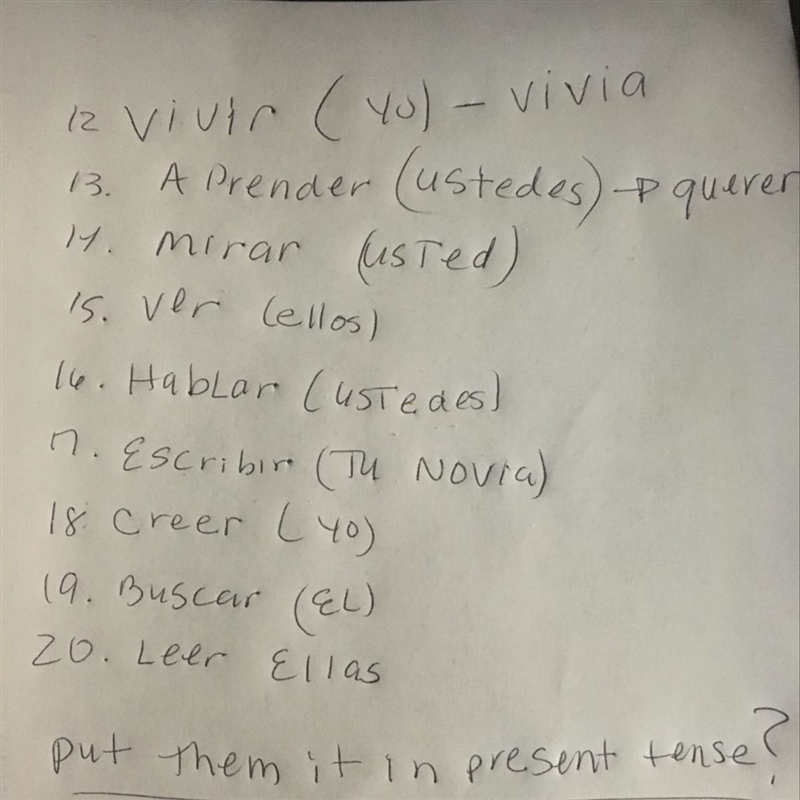 12 Vivir (yo) - vivia
13. Aprender (ustedes) → querer
14. mirar (usTed)
15. ver (ellos)
16. HabLar (usTedes)
17. Escribir (Tu Novia)
18. creer (yo)
19. Buscar (EL)
20. Leer Ellas
put them it in present tense?